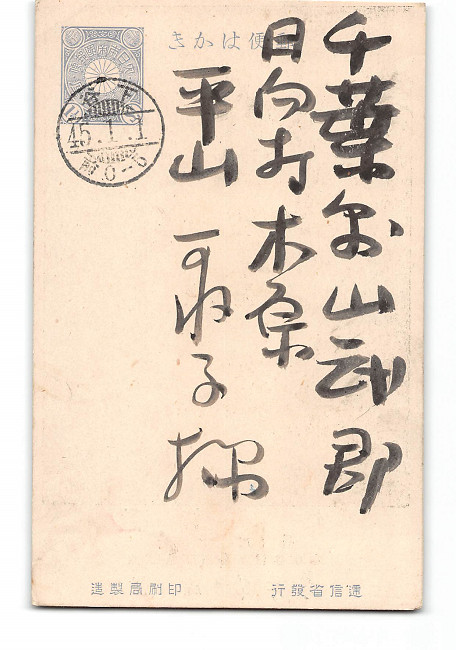 郵便はかき
千葉縣山武郡
日向村木原
平山 子 様
45.1.1
遞信省發行
印刷局製造